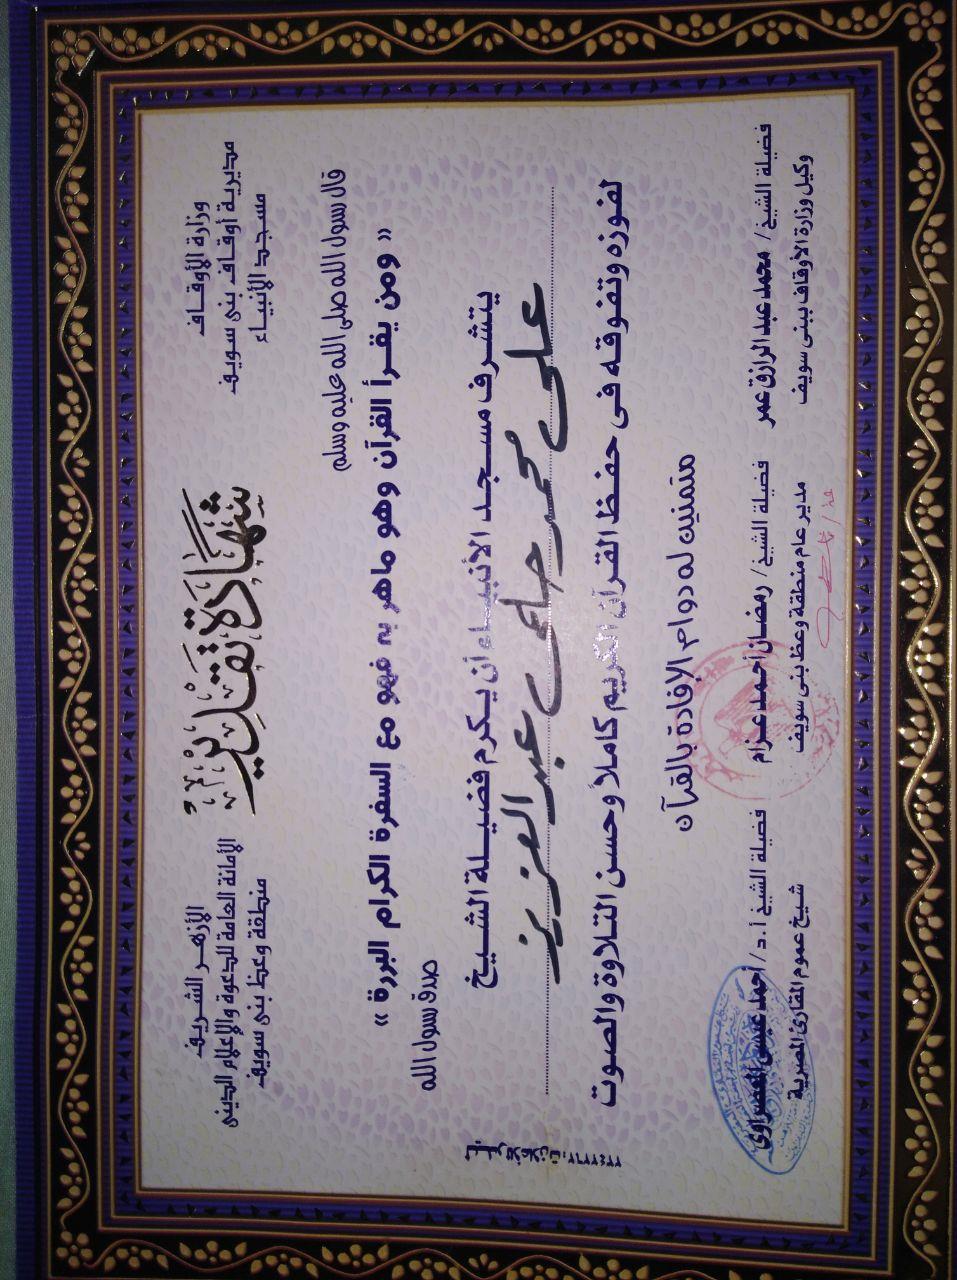 وزارة الأوقاف
مديرية أوقاف بنى سويف
مسجد الأنبياء
شهادة تقدير
الأزهر الشريف
الأمانة العامة للدعوة والإعلام الدينى
منطقة وعظ بنى سويف
قال رسول الله صلى الله عليه وسلم
« ومن يقرأ القرآن وهو ماهر به فهو مع السفرة الكرام البررة »
صدق رسول الله
يتشرف مسجد الأنبياء أن يكرم فضيلة الشيخ
على محمد حامى عبد العزيز
لفوزه وتفوقه فى حفظ القرآن الكريم كاملاً وحسن التلاوة والصوت
متمنين له دوام الإفادة بالقرآن
فضيلة الشيخ / محمد عبد الرازق عمر
وكيل وزارة الأوقاف ببنى سويف
فضيلة الشيخ / رمضان أحمد عزام
مدير عام منطقة وعظ بنى سويف
فضيلة الشيخ أ.د / أحمد عيسى المعصراوى
شيخ عموم المقارئ المصرية